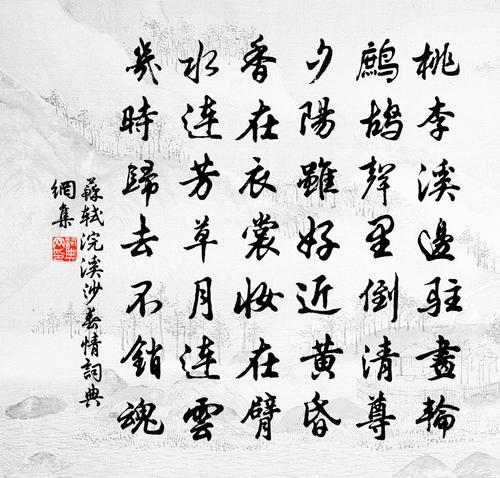 桃李溪邊駐畫輪
鷓鴣聲里倒清尊
夕陽雖好近黃昏
香在衣裳妝在臂
水連芳草月連雲
幾時歸去不銷魂
蘇軾浣溪沙春情詞典
網集